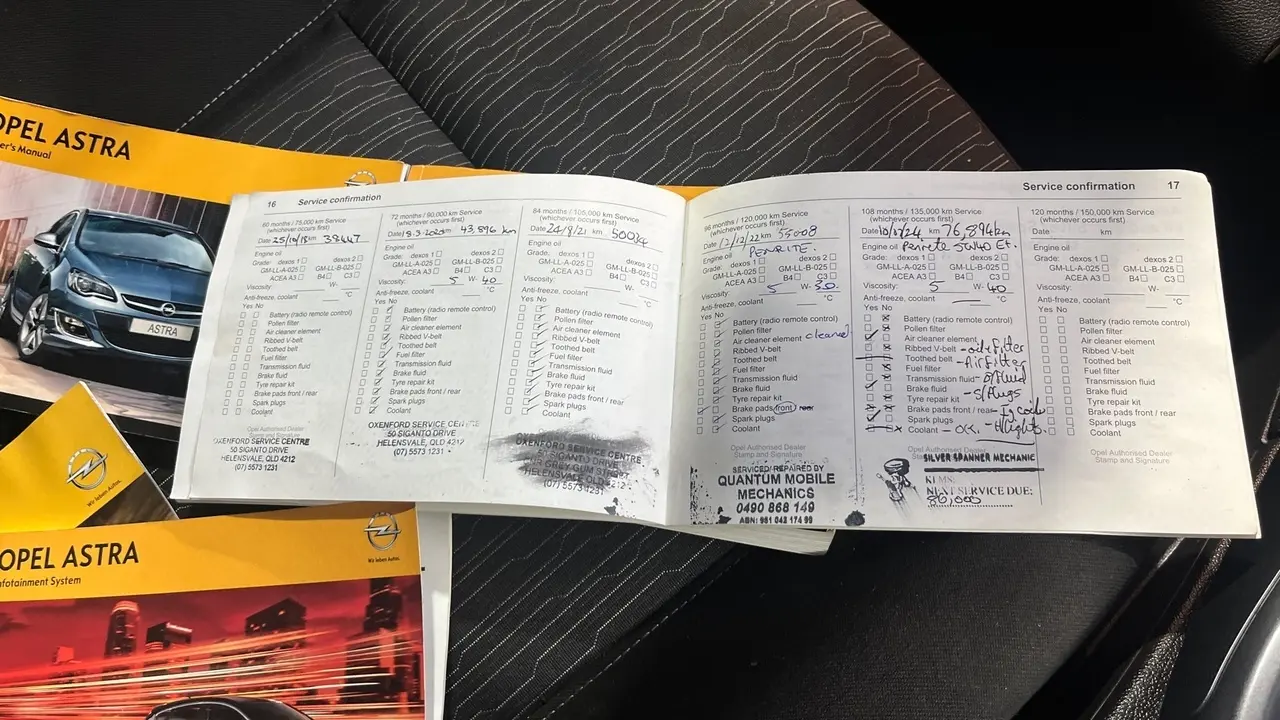 OPEL ASTRA
er's Manual
ASTRA
Wir leben Autos.
OPEL ASTRA
nfotainment System
Wir leben Autos.
16 Service confirmation
60 months / 75,000 km Service
(whichever occurs first)
Date 25/10/18 km
Engine oil
Grade: dexos 1 dexos 2
GM-LL-A-025 GM-LL-B-025
ACEA A3 B4 C3
Viscosity: W-
Anti-freeze, coolant °C
Yes No
Battery (radio remote control)
Pollen filter
Air cleaner element
Ribbed V-belt
Toothed belt
Fuel filter
Transmission fluid
Brake fluid
Tyre repair kit
Brake pads front / rear
Spark plugs
Coolant
Opel Authorised Dealer
Stamp and Signature
OXENFORD SERVICE CENTRE
50 SIGANTO DRIVE
HELENSVALE, QLD 4212
(07) 5573 1231
72 months / 90,000 km Service
(whichever occurs first)
Date 18.3.2020 43,896 km
Engine oil
Grade: dexos 1 dexos 2
GM-LL-A-025 GM-LL-B-025
ACEA A3 B4 C3
Viscosity: 5 W- 40
Anti-freeze, coolant °C
Yes No
Battery (radio remote control)
Pollen filter
Air cleaner element
Ribbed V-belt
Toothed belt
Fuel filter
Transmission fluid
Brake fluid
Tyre repair kit
Brake pads front / rear
Spark plugs
Coolant
OXENFORD SERVICE CENTRE
50 SIGANTO DRIVE
HELENSVALE, QLD 4212
(07) 5573 1231
84 months / 105,000 km Service
(whichever occurs first)
Date 24/9/21 km
Engine oil
Grade: dexos 1 dexos 2
GM-LL-A-025 GM-LL-B-025
ACEA A3 B4 C3
Viscosity: W-
Anti-freeze, coolant °C
Yes No
Battery (radio remote control)
Pollen filter
Air cleaner element
Ribbed V-belt
Toothed belt
Fuel filter
Transmission fluid
Brake fluid
Tyre repair kit
Brake pads front / rear
Spark plugs
Coolant
OXENFORD SERVICE CENTRE
SIGANTO DRIVE
GREY GUM STREET
HELENSVALE QLD 4212
(07) 5573 1231
Service confirmation 17
96 months / 120,000 km Service
(whichever occurs first)
Date 12/12/22 km 55008
Engine oil PENRITE.
Grade: dexos 1 dexos 2
GM-LL-A-025 GM-LL-B-025
ACEA A3 B4 C3
Viscosity: 5 W- 30
Anti-freeze, coolant °C
Yes No
Battery (radio remote control)
Pollen filter
Air cleaner element cleaned
Ribbed V-belt
Toothed belt
Fuel filter
Transmission fluid
Brake fluid
Tyre repair kit
Brake pads front / rear
Spark plugs
Coolant
Opel Authorised Dealer
Stamp and Signature
SERVICED/REPAIRED BY
QUANTUM MOBILE
MECHANICS
0490 868 149
ABN: 981 042 174 99
108 months / 135,000 km Service
(whichever occurs first)
Date 76,894km
Engine oil Penrite 5W40
Grade: dexos 1 dexos 2
GM-LL-A-025 GM-LL-B-025
ACEA A3 B4 C3
Viscosity: 5 W- 40
Anti-freeze, coolant °C
Yes No
Battery (radio remote control)
Pollen filter
Air cleaner element
Ribbed V-belt - oil filter
Toothed belt - Air filter
Fuel filter
Transmission fluid - B/Fluid
Brake fluid - S/Plugs
Tyre repair kit
Brake pads front / rear
Spark plugs
Coolant - O.K.
Opel Authorised Dealer
SILVER SPANNER MECHANIC
KLMS:
NEXT SERVICE DUE:
86,000
120 months / 150,000 km Service
(whichever occurs first)
Date km
Engine oil
Grade: dexos 1 dexos 2
GM-LL-A-025 GM-LL-B-025
ACEA A3 B4 C3
Viscosity: W-
Anti-freeze, coolant °C
Yes No
Battery (radio remote control)
Pollen filter
Air cleaner element
Ribbed V-belt
Toothed belt
Fuel filter
Transmission fluid
Brake fluid
Tyre repair kit
Brake pads front / rear
Spark plugs
Coolant
Opel Authorised Dealer
Stamp and Signature